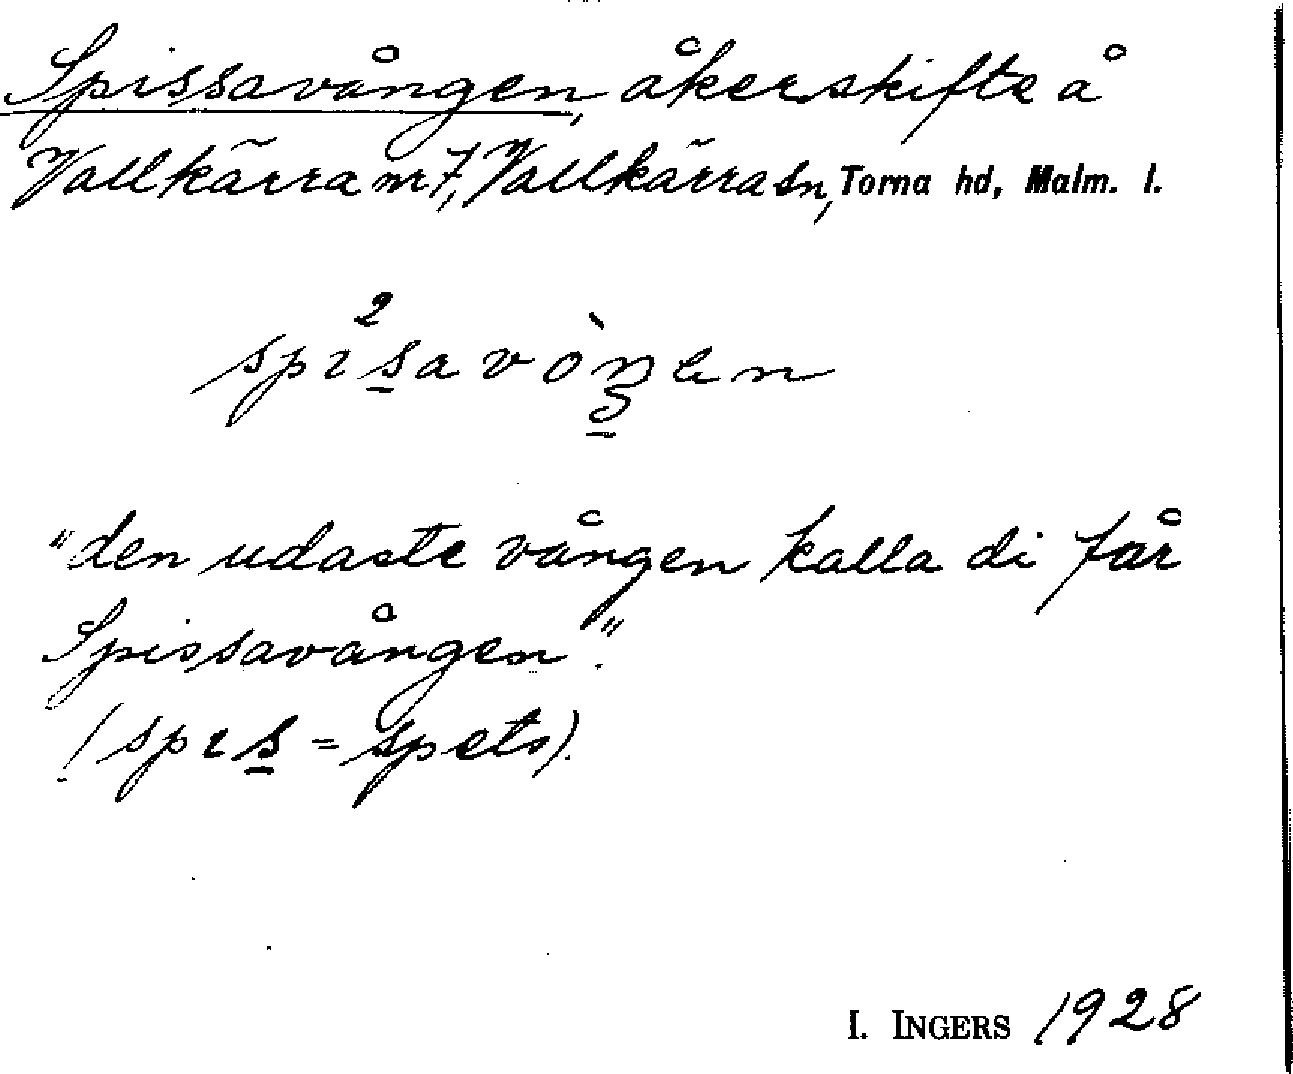 Spissavången, åkerskifte å
Vallkärra nr 7, Vallkärra sn, Torna hd, Malm. l.
spɪ²s̲avòŋ̲en
"den udaste vången kalla di får
Spissavången".
(spɪs̲ = spets).
I. INGERS 1928